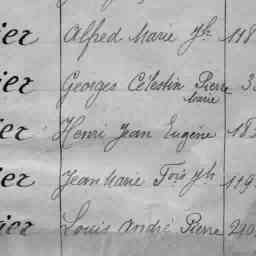 ier Alfred Marie Jh 118
ier Georges Célestin Pierre
Marie
ier Henri Jean Eugène 182
ier Jean Marie Fois Jh 119
ier Louis André Pierre 240